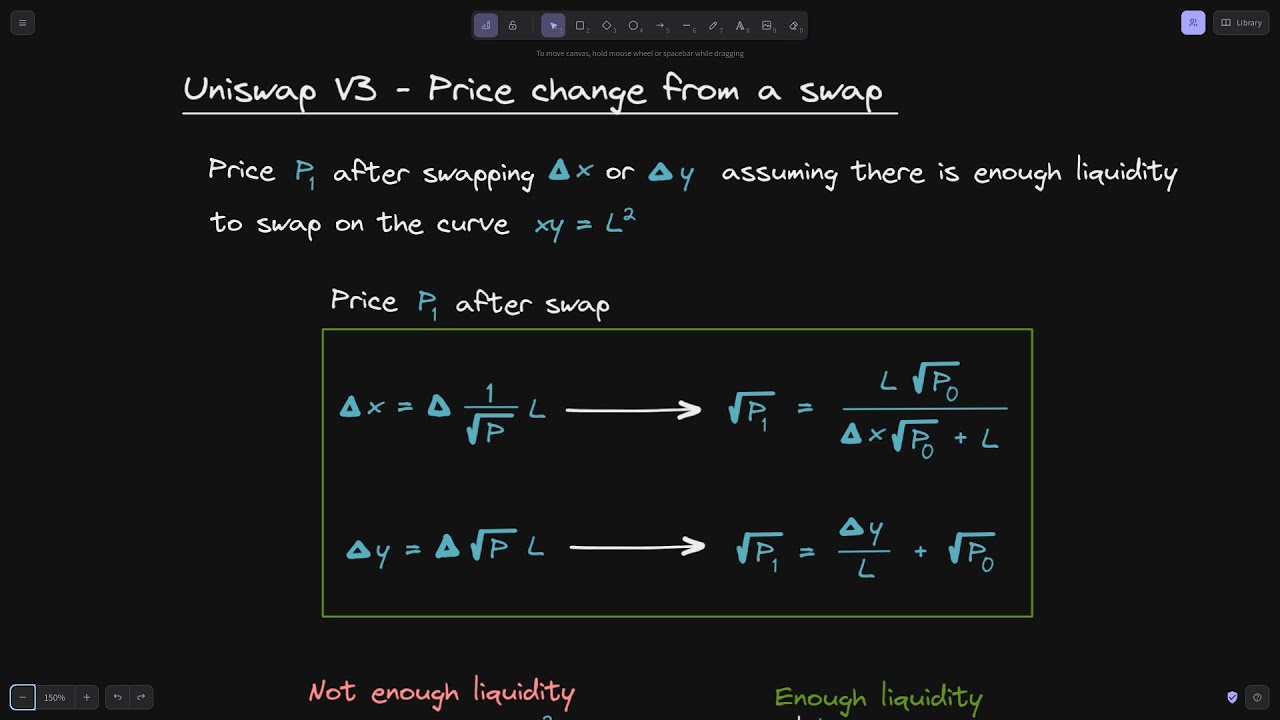 Library
To move canvas, hold mouse wheel or spacebar while dragging
Uniswap V3 - Price change from a swap
Price P₁ after swapping Δx or Δy assuming there is enough liquidity
to swap on the curve xy = L²
Price P₁ after swap
Δx = Δ 1/√P L ⟶ √P₁ = L √P₀ / (Δx√P₀ + L)
Δy = Δ √P L ⟶ √P₁ = Δy/L + √P₀
Not enough liquidity
Enough liquidity
150%